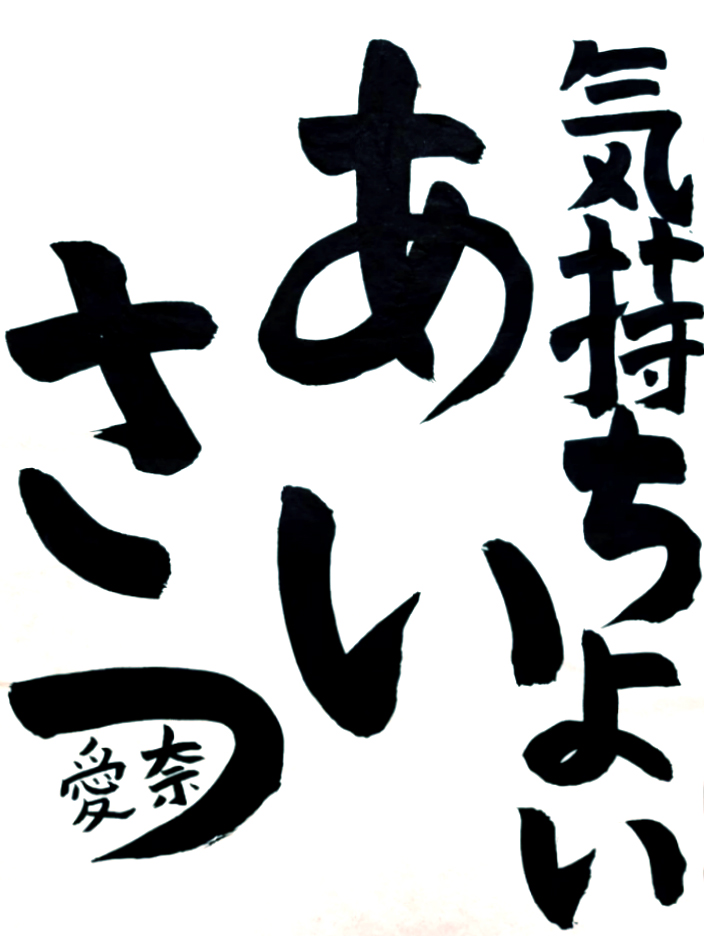 気持ちよい
あい
さつ
愛奈